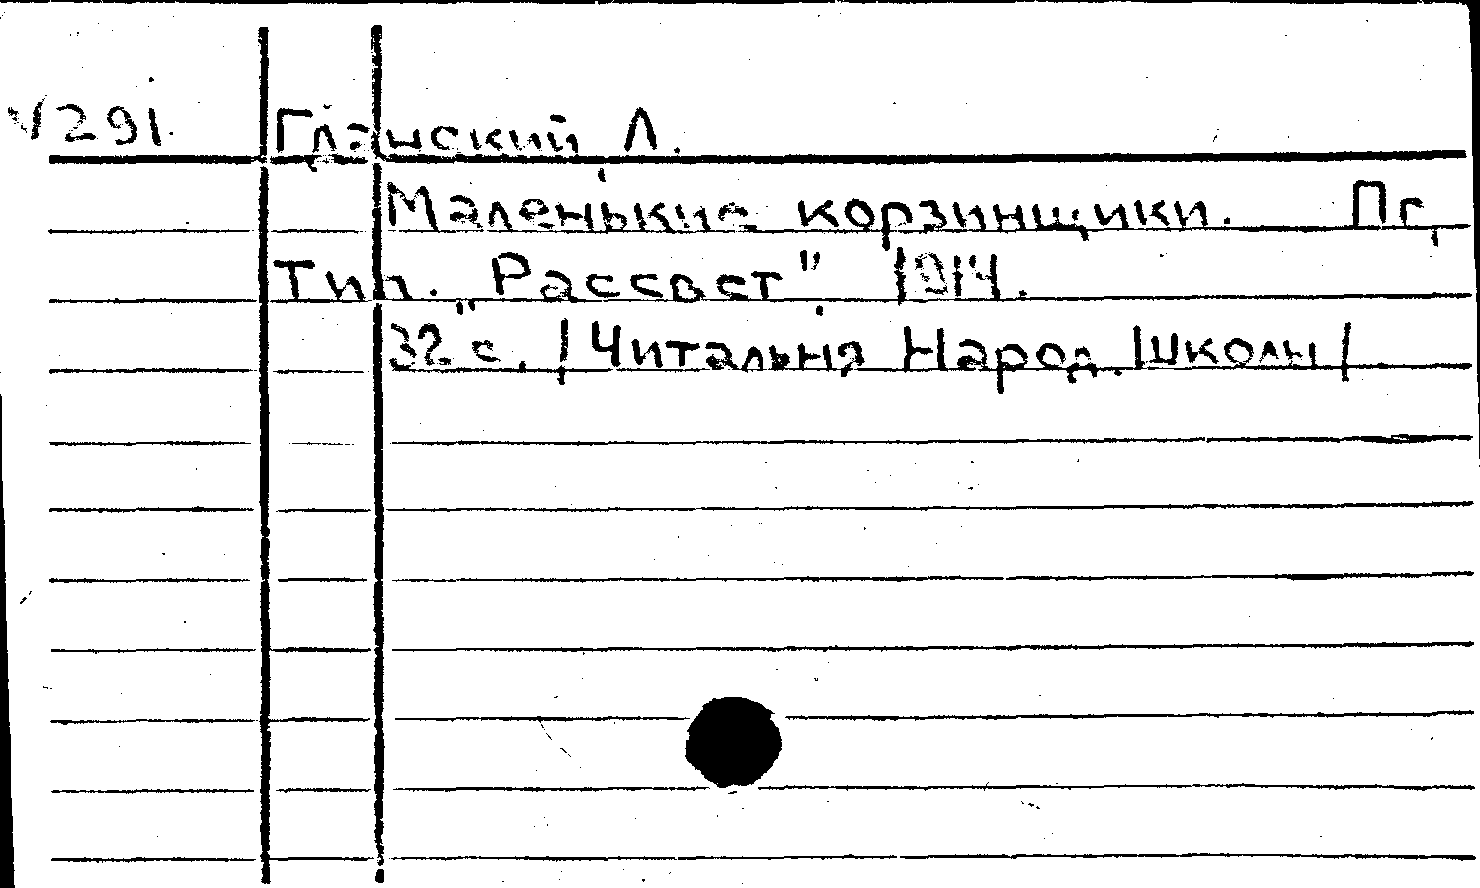 V291. Гданский Л.
Маленькие корзинщики. Пг,
Тип. „Рассвет", 1914.
32 с. /Читальня Народ. Школы/